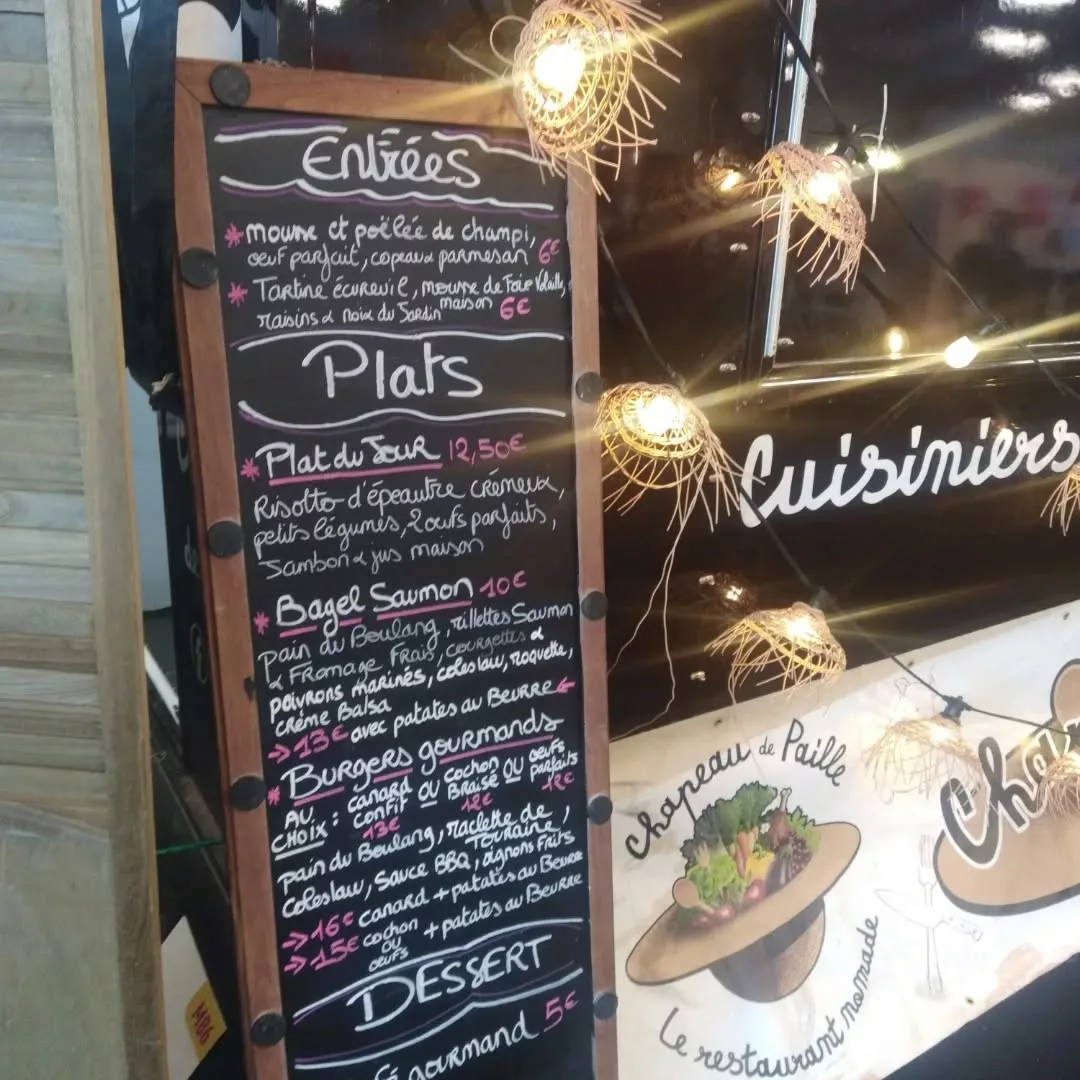 Entrées
* mousse et poëlée de champi,
œuf parfait, copeaux parmesan 6€
* Tartine écureuil, mousse de Foie Volaille,
raisins & noix du Jardin maison 6€
Plats
* Plat du Jour 12,50€
Risotto d'épeautre crémeux,
petits légumes, 2 œufs parfaits,
Jambon & jus maison
* Bagel Saumon 10€
pain du Boulang, rillettes Saumon
& Fromage Frais, courgettes &
poivrons marinés, coleslaw, roquette,
crème Balsa
→ 13€ avec patates au Beurre ←
* Burgers gourmands
AU CHOIX : canard confit OU cochon Braisé OU œufs parfaits
13€ 12€ 12€
pain du Boulang, raclette de Touraine,
Coleslaw, Sauce BBQ, oignons Frits
→ 16€ canard + patates au Beurre
→ 15€ cochon OU œufs + patates au Beurre
DESSERT
gourmand 5€
Cuisiniers
Chapeau de Paille
Le restaurant nomade
Cha
MB6